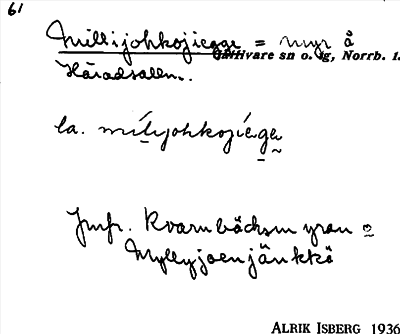 61
Millijohkojiegge = myr å
Gällivare sn o. tg, Norrb. l.
Häradsallm.
la. mílijohkojíegge
Jmfr. Kvarnbäcksmyran o
Myllyjoenjänkkä
ALRIK ISBERG 1936